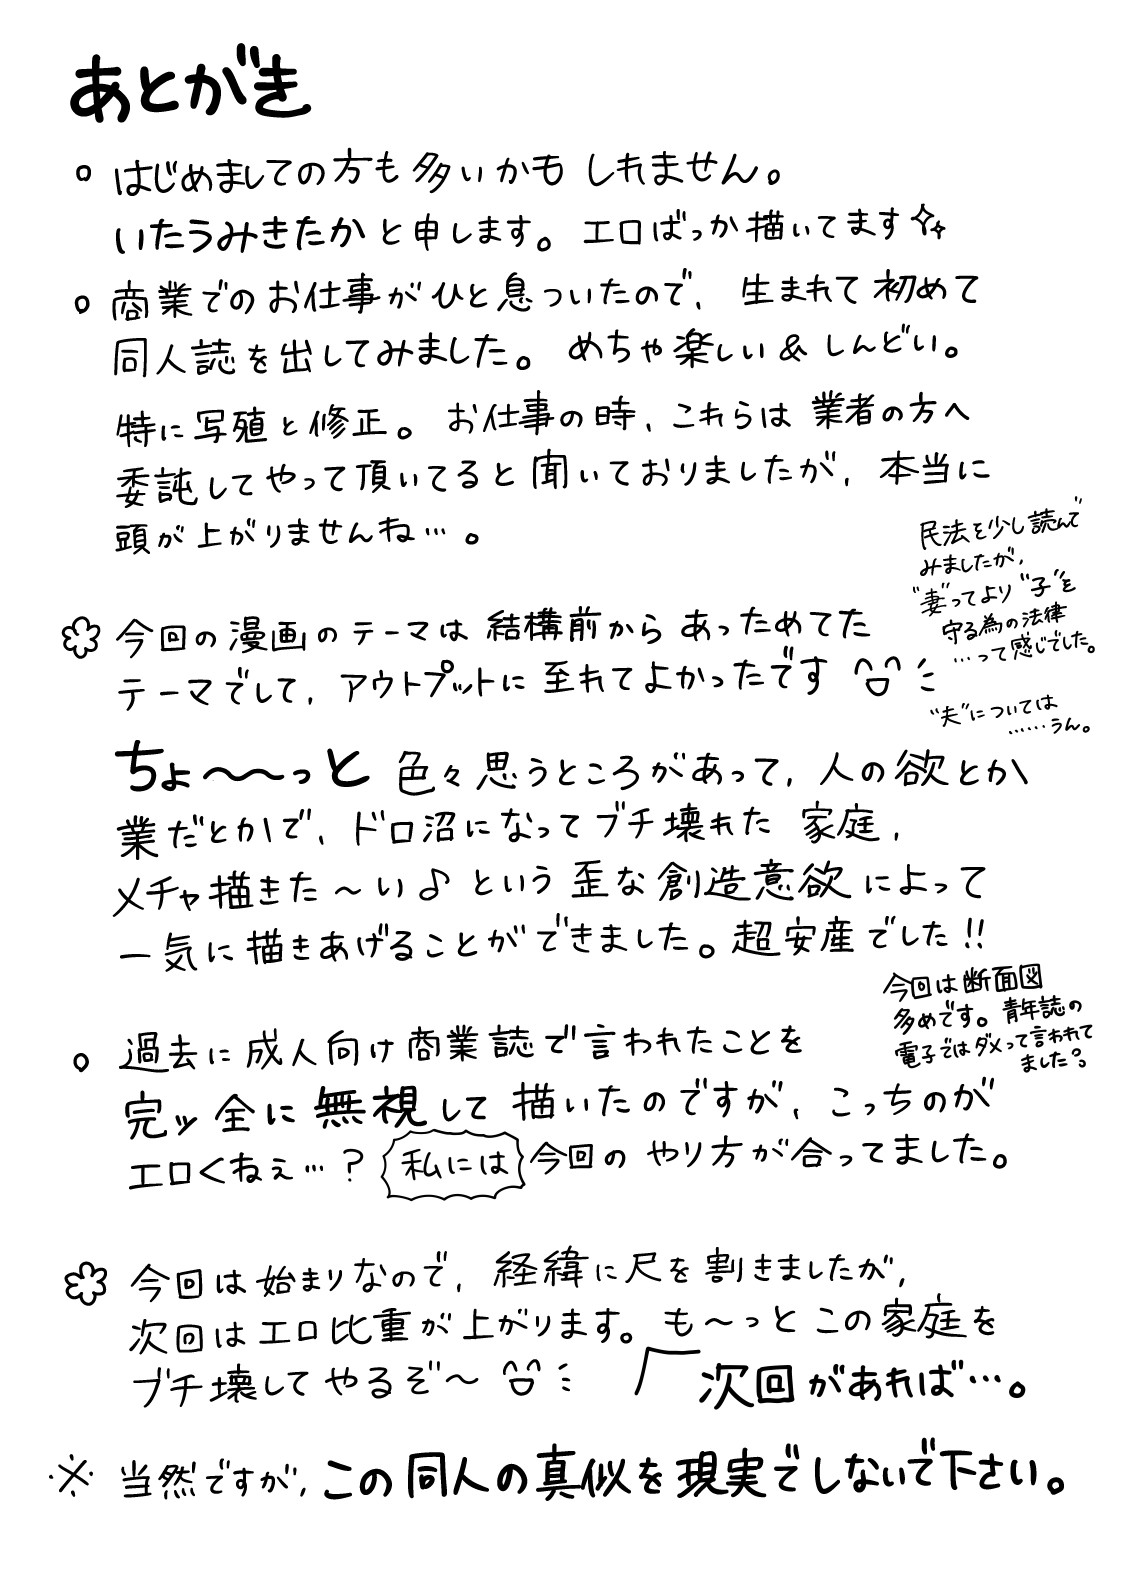 あとがき
はじめましての方も多いかもしれません。
いたうみきたかと申します。エロばっか描いてます✧
商業でのお仕事がひと息ついたので、生まれて初めて
同人誌を出してみました。めちゃ楽しい&しんどい。
特に写殖と修正。お仕事の時、これらは業者の方へ
委託してやって頂いてると聞いておりましたが、本当に
頭が上がりませんね…。
今回の漫画のテーマは結構前からあっためてた
テーマでして、アウトプットに至れてよかったです
民法を少し読んで
みましたが、
"妻"ってより"子"を
守る為の法律
…って感じでした。
"夫"については
……うん。
ちょ〜〜っと色々思うところがあって、人の欲とか
業だとかで、ドロ沼になってブチ壊れた家庭、
メチャ描きた〜い♪という歪な創造意欲によって
一気に描きあげることができました。超安産でした!!
過去に成人向け商業誌で言われたことを
完ッ全に無視して描いたのですが、こっちのが
エロくねぇ…?私には今回のやり方が合ってました。
今回は断面図
多めです。青年誌の
電子ではダメって言われて
ました?。
今回は始まりなので、経緯に尺を割きましたが、
次回はエロ比重が上がります。も〜っとこの家庭を
ブチ壊してやるぞ〜
次回があれば…。
※当然ですが、この同人の真似を現実でしないで下さい。